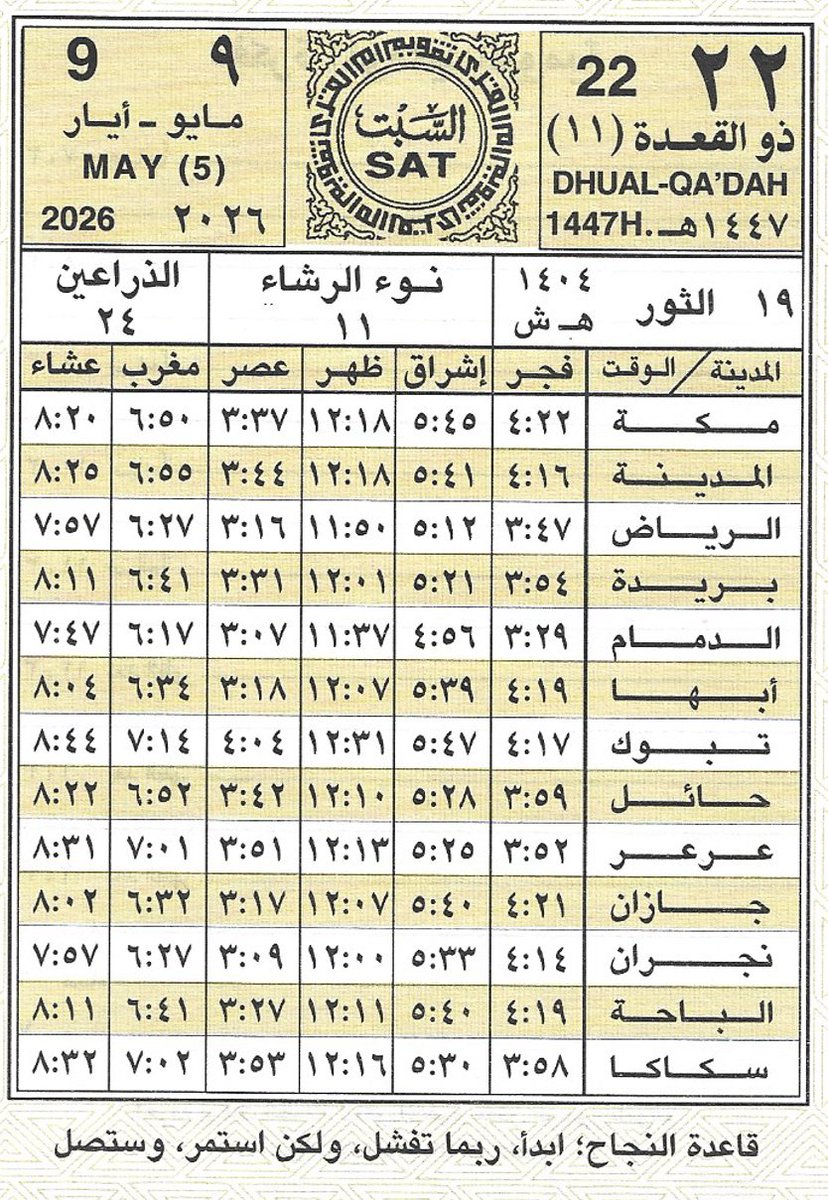 ٢٢ 22
ذو القعدة (١١)
DHUAL-QA'DAH
1447H. ١٤٤٧هـ
السبت
SAT
9 ٩
مايو - أيار
MAY (5)
2026 ٢٠٢٦
١٩ الثور ١٤٠٤ هـ ش
نوء الرشاء
١١
الذراعين
٢٤
المدينة / الوقت فجر إشراق ظهر عصر مغرب عشاء
مكة ٤:٢٢ ٥:٤٥ ١٢:١٨ ٣:٣٧ ٦:٥٠ ٨:٢٠
المدينة ٤:١٦ ٥:٤١ ١٢:١٨ ٣:٤٤ ٦:٥٥ ٨:٢٥
الرياض ٣:٤٧ ٥:١٢ ١١:٥٠ ٣:١٦ ٦:٢٧ ٧:٥٧
بريدة ٣:٥٤ ٥:٢١ ١٢:٠١ ٣:٣١ ٦:٤١ ٨:١١
الدمام ٣:٢٩ ٤:٥٦ ١١:٣٧ ٣:٠٧ ٦:١٧ ٧:٤٧
أبها ٤:١٩ ٥:٣٩ ١٢:٠٧ ٣:١٨ ٦:٣٤ ٨:٠٤
تبوك ٤:١٧ ٥:٤٧ ١٢:٣١ ٤:٠٤ ٧:١٤ ٨:٤٤
حائل ٣:٥٩ ٥:٢٨ ١٢:١٠ ٣:٤٢ ٦:٥٢ ٨:٢٢
عرعر ٣:٥٢ ٥:٢٥ ١٢:١٣ ٣:٥١ ٧:٠١ ٨:٣١
جازان ٤:٢١ ٥:٤٠ ١٢:٠٧ ٣:١٧ ٦:٣٢ ٨:٠٢
نجران ٤:١٤ ٥:٣٣ ١٢:٠٠ ٣:٠٩ ٦:٢٧ ٧:٥٧
الباحة ٤:١٩ ٥:٤٠ ١٢:١١ ٣:٢٧ ٦:٤١ ٨:١١
سكاكا ٣:٥٨ ٥:٣٠ ١٢:١٦ ٣:٥٣ ٧:٠٢ ٨:٣٢
قاعدة النجاح؛ ابدأ، ربما تفشل، ولكن استمر، وستصل